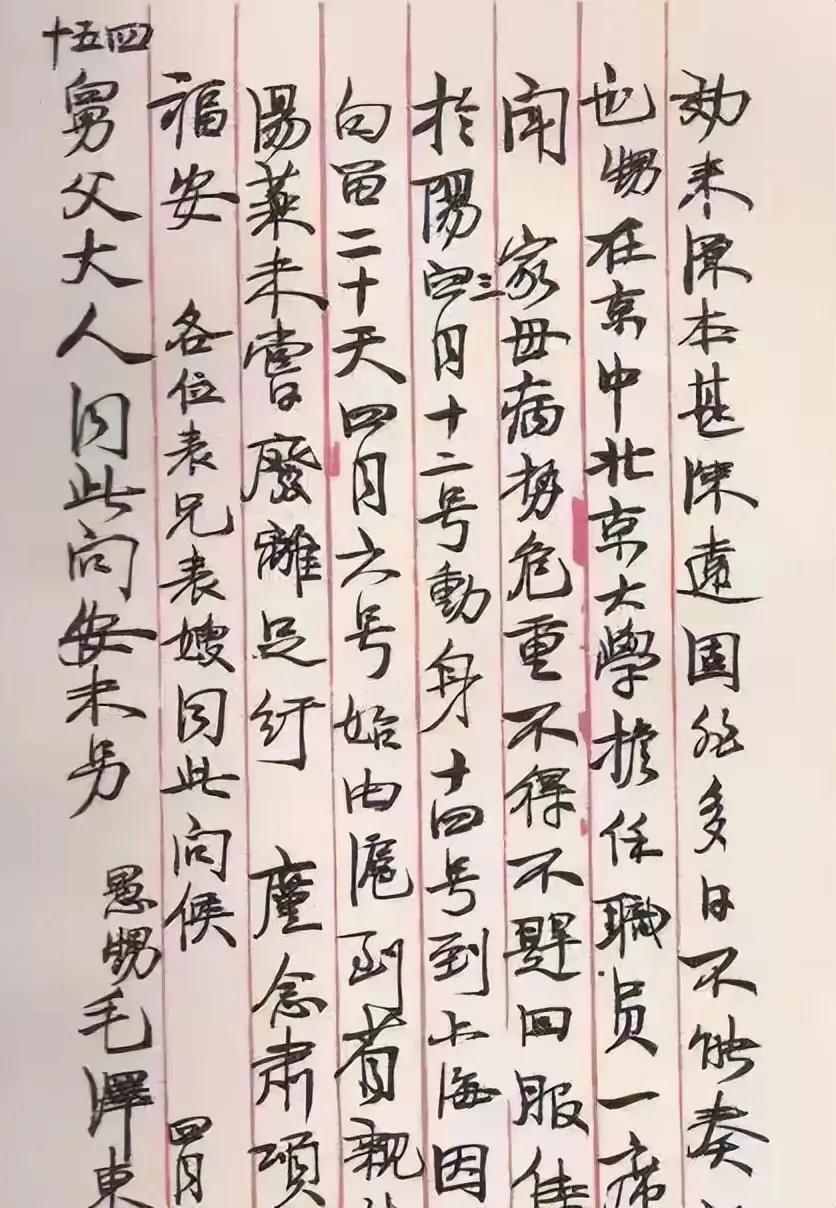 効来源本甚深遠固非多日不能奏
也甥在京中北京大學擔任職員一席
闻 家母病勢危重不得不趕回服侍
於陽 三月十二号動身十四号到上海因
勾留二十天四月六号始由滬到省親
湯藥未嘗廢離足纾 廑念肃項
福安 各位表兄表嫂同此问候
十五四
舅父大人同此问安未另
愚甥毛澤東
四月